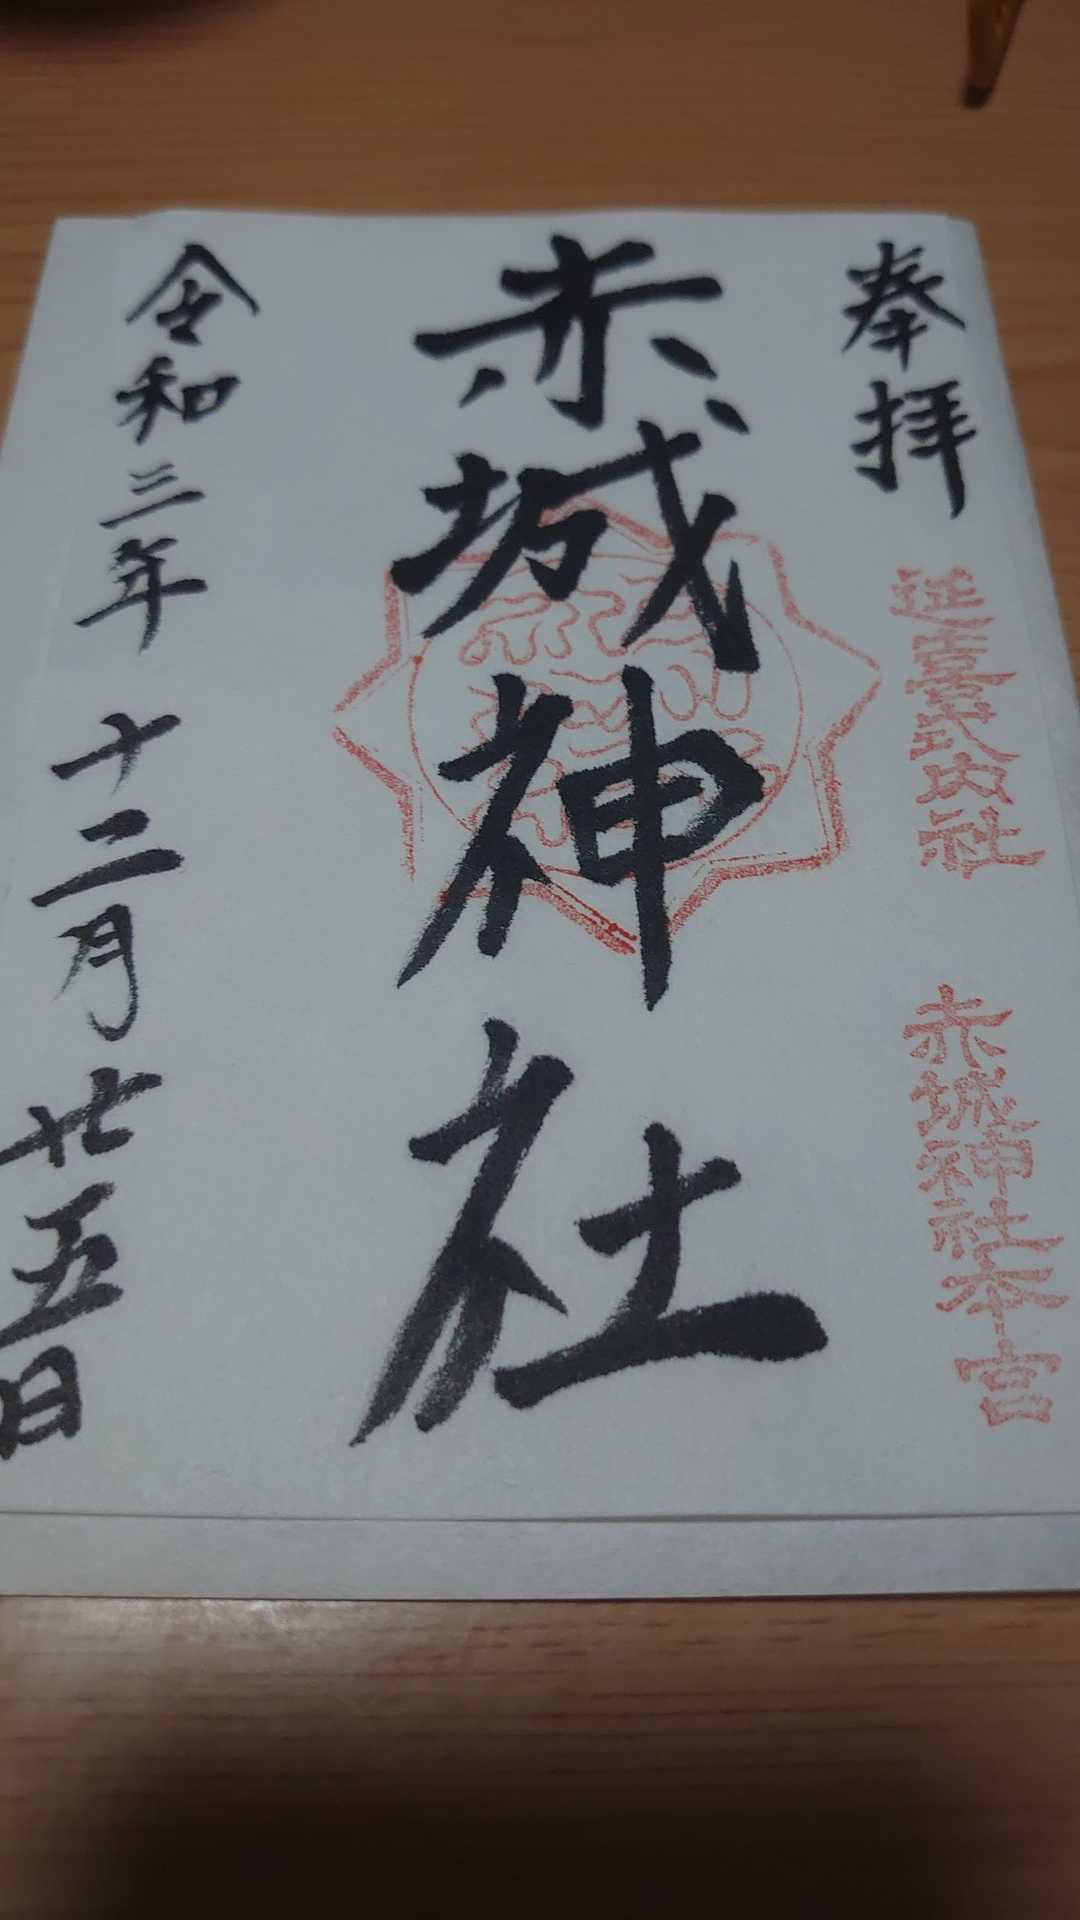 奉拝
延喜式内社
赤城神社本宮
赤城神社
令和三年 十二月 廿五日